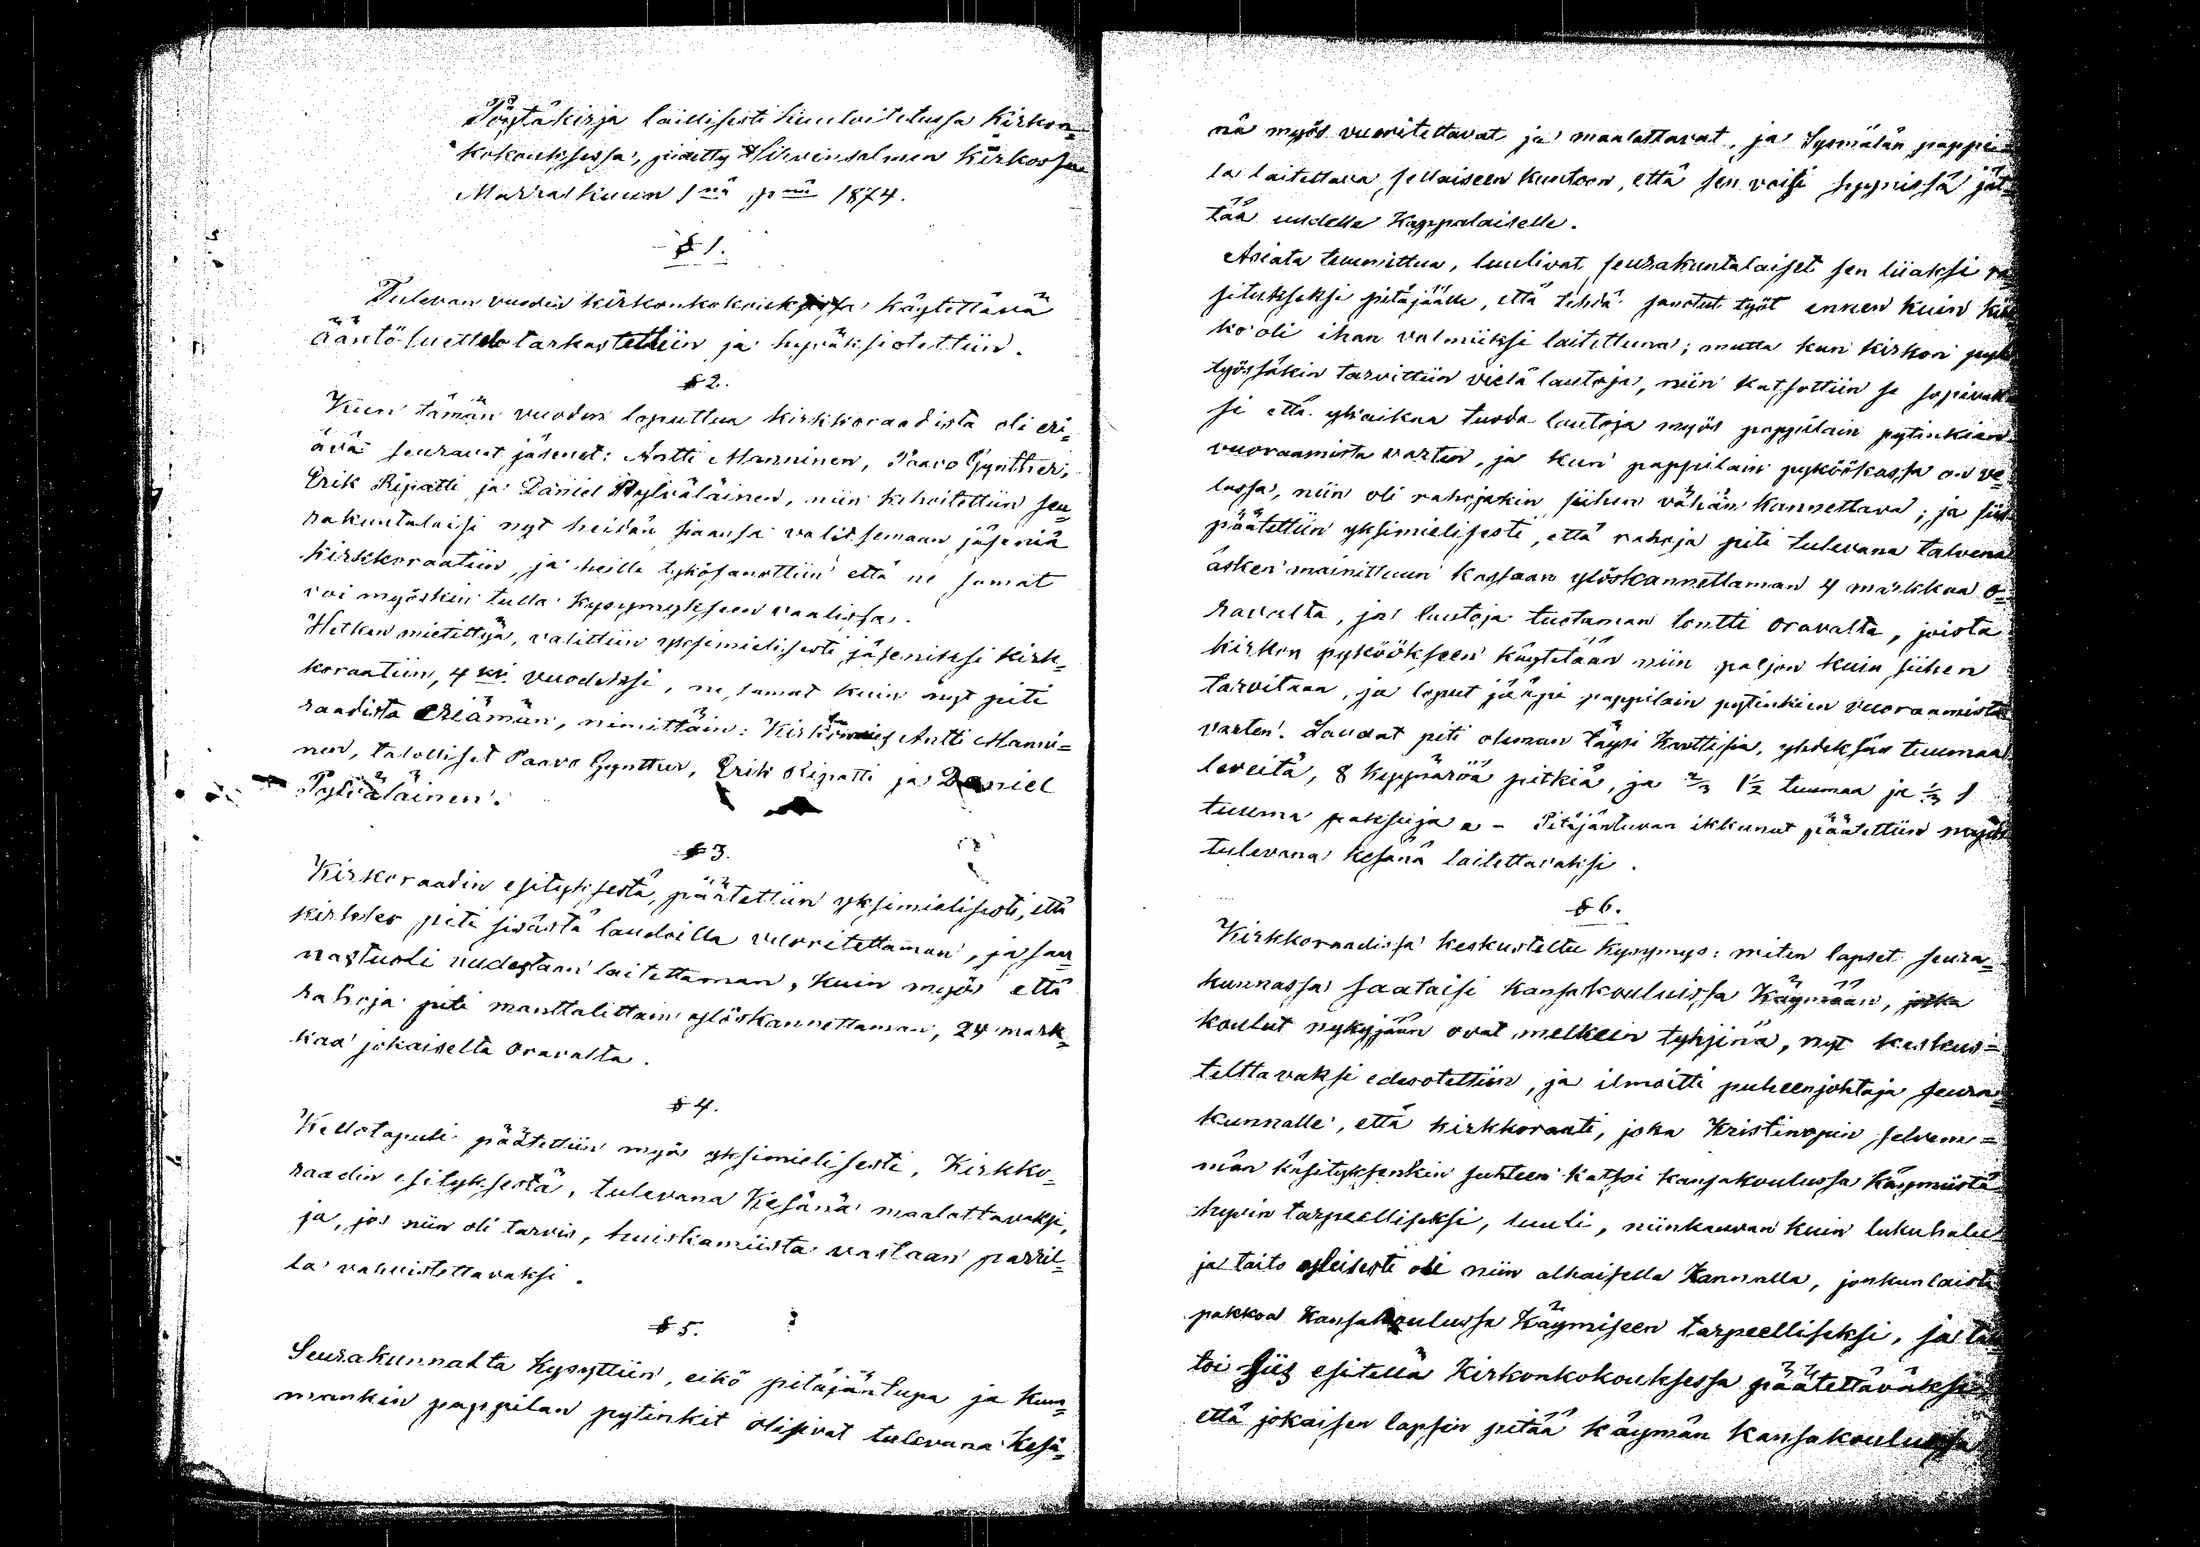 Pöytäkirja laillisesti kuuloitetussa Kirkon-
kokouksessa, pidetty Hirvensalmen Kirkossa
Marraskuun 1nä pnä 1874.
§ 1.
Tulevan vuoden kirkonkokouksissa käytettävä
ääntöluettelo tarkastettiin ja hyväksiotettiin.
§ 2.
Kun tämän vuoden loputtua kirkkoraadista oli eri-
ävä seuraavat jäsenet: Antti Manninen, Paavo Gynther,
Erik Ripatti ja Daniel Pylväläinen, niin kehoitettiin seu-
rakuntalaisi nyt heidän siaansa valitsemaan jäseniä
kirkkoraatiin, ja heille tykösanottiin että ne samat
voi myöskin tulla kysymykseen vaalissa.
Hetken mietittyä, valittiin yksimielisesti jäseniksi kirk-
koraatiin, 4ksi vuodeksi, ne samat kuin nyt piti
raadista eriämän, nimittäin: Kirkonmies Antti Manni=
nen, talolliset Paavo Gynther, Erik Ripatti ja Daniel
Pylväläinen.
§ 3.
Kirkoraadin esityksestä, päätettiin yksimielisesti, että
kirkko piti sisästä laudoilla vuoritettaman, ja saar-
nastuoli uudestaan laitettaman, kuin myös että
rahoja piti manttalittain ylöskannettaman, 24 mark-
kaa jokaiselta oravalta.
§ 4.
Kellotapuli päätettiin myös yksimielisesti, Kirkko-
raadin esityksestä, tulevana Kesänä maalattavaksi,
ja, jos niin oli tarvis, huiskamiista vastaan parril-
la vahvistettavaksi.
§ 5.
Seurakunnalta Kysyttiin, eikö pitäjäntupa ja kum-
mankin pappilan pytinkit olisivat tulevana Kesä-
nä myös vuoritettavat ja maalattavat, ja Sysmälän pappi-
la laitettava sellaiseen kuntoon, että sen voisi syynissä jät-
tää uudelle Kappalaiselle.
Asiata tuumittua, luulivat seurakuntalaiset sen liiaksi ra-
situkseksi pitäjäälle, että tehdä sanotut työt ennen kuin kirk-
ko oli ihan valmiiksi laitettuna; mutta kun kirkon pyk-
työssäkin tarvittiin vielä lautoja, niin katsottiin se sopivak-
si että yhtaikaa tuoda lautoja myös pappilain pytinkien
vuoraamista varten, ja kun pappilain pyköökassa on ve-
lassa, niin oli rahojakin siihen vähän kannettava; ja siis
päätettiin yksimielisesti, että rahoja piti tulevana talvena
äsken mainittuun kassaan ylöskannettaman 4 markkaa o-
ravalta, ja lautoja tuotaman tontti oravalta, joista
kirkon pyköökseen käytetään niin paljon kuin siihen
tarvitaan, ja loput jääpi pappilain pytinkien vuoraamista
varten. Laudat piti oleman täysi Kanttisia, yhdeksän tuumaa
leveitä, 8 kyynäröä pitkiä, ja 2/3 1½ tuumaa ja 1/3 1
tuuma paksuja. – Pitäjäntuvan ikkunat päätettiin myös
tulevana kesänä laitettavaksi.
§ 6.
Kirkkoraadissa keskusteltu kysymys: miten lapset seura-
kunnassa saataisi kansakouluissa Käymään, jotka
koulut nykyjään ovat melkein tyhjinä, nyt keskus=
teltavaksi edesotettiin, ja ilmoitti puheenjohtaja seura-
kunnalle, että kirkkoraati, joka Kristinopin selvem=
män käsityksenkin suhteen katsoi kansakoulussa käymistä
hyvin tarpeelliseksi, luuli, niinkauvan kuin lukuhalu
ja taito yleisesti oli niin alhaisella Kannalla, jonkunlaista
pakkoa Kansakoulussa Käymiseen tarpeelliseksi, ja tah-
toi siis esitellä Kirkonkokouksessa päätettäväksi
että jokaisen lapsen pitää käymän kansakoulussa